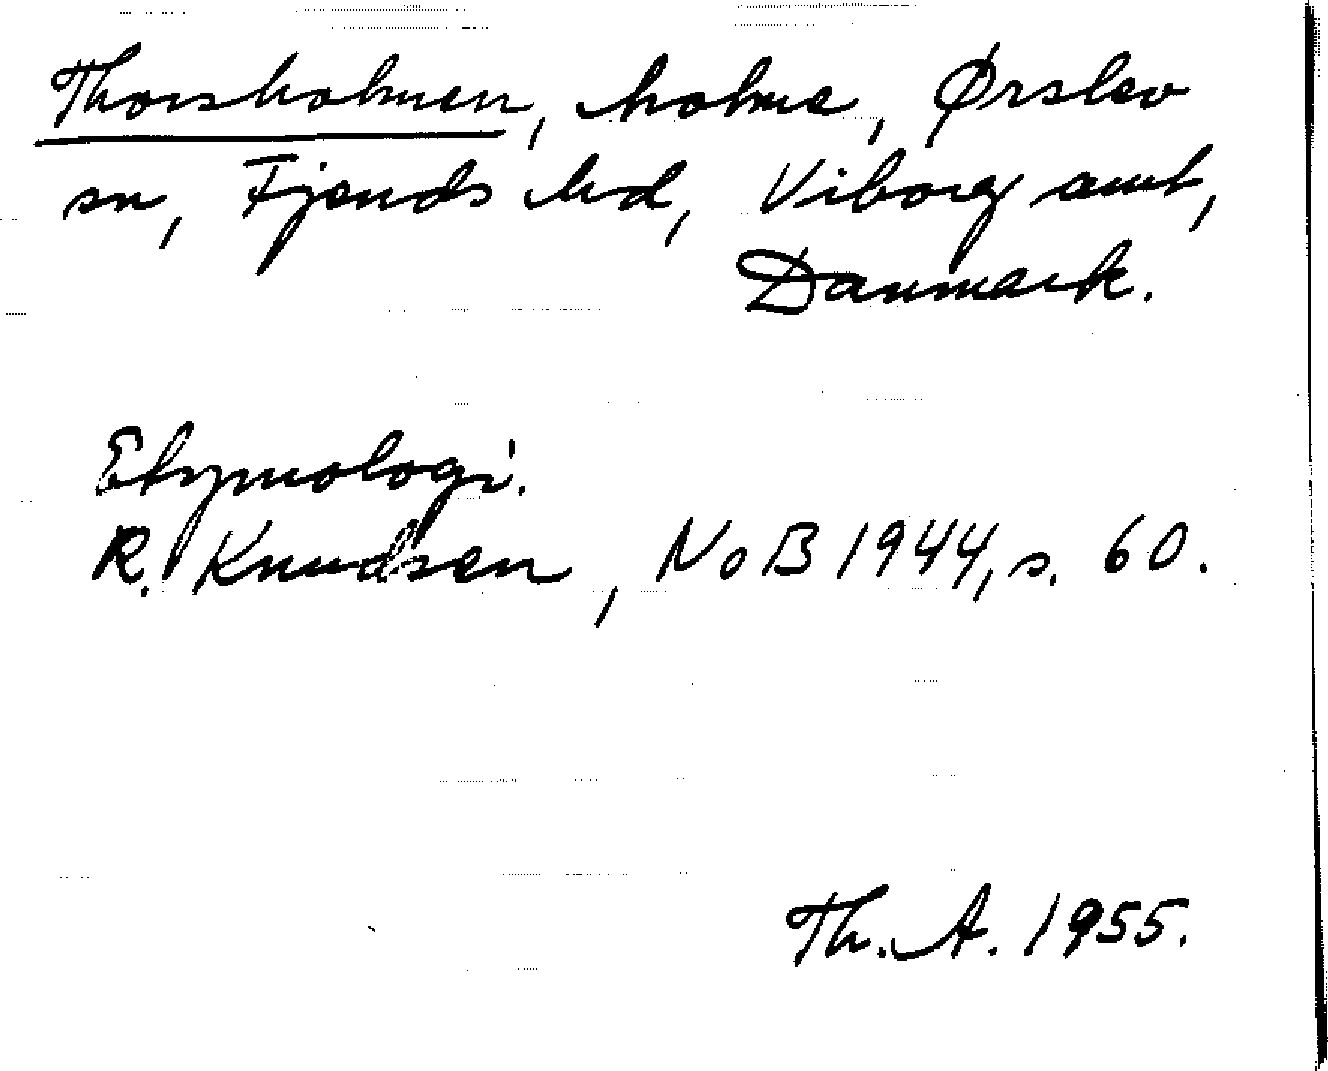 Thorsholmen, holme, Ørslev
sn, Fjends hd, Viborg amt,
Danmark.
Etymologi.
R. Knudsen, NoB 1944, s. 60.
Th. A. 1955.